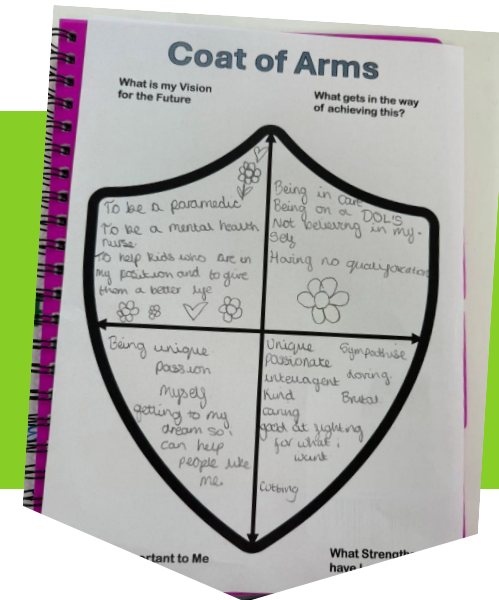 Coat of Arms
What is my Vision
for the Future
What gets in the way
of achieving this?
To be a paramedic
To be a mental health
nurse.
To help kids who are in
my position and to give
them a better life
Being in care
Being on a DOL'S
Not believing in my-
self
Having no qualifacations
Being unique
Passion
Myself
getting to my
dream so i
can help
people like
me.
Unique Sympathise
Passionate
intellagent loving
Kind Brutal
caring
good at fighting
for what i
want
Cutting
ortant to Me
What Strength
have I